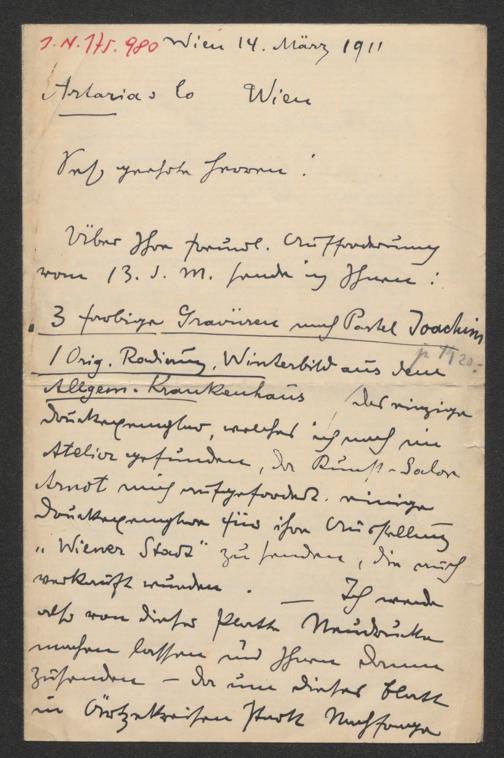 J. N. 175.980 Wien 14. März 1911
Artaria & Co Wien
Sehr geehrte Herren!
Über Ihre freundl. Aufforderung
vom 13. d. M. sende ich Ihnen:
3 farbige Gravüren nach Pastel Joachim
1 Orig. Radirung, Winterbild aus dem
Allgem. Krankenhaus, das einzige
Druckexemplar, welches ich noch im
Atelier gefunden, da Kunst-Salon
Arnot mich aufgefordert einige
Druckexemplare für ihre Ausstellung
"Wiener Stadt" zu senden, die auch
verkauft wurden. — Ich werde
also von dieser Platte Neudrucke
machen lassen und Ihnen dann
zusenden — da um dieses Blatt
in Ärztekreisen starke Nachfrage